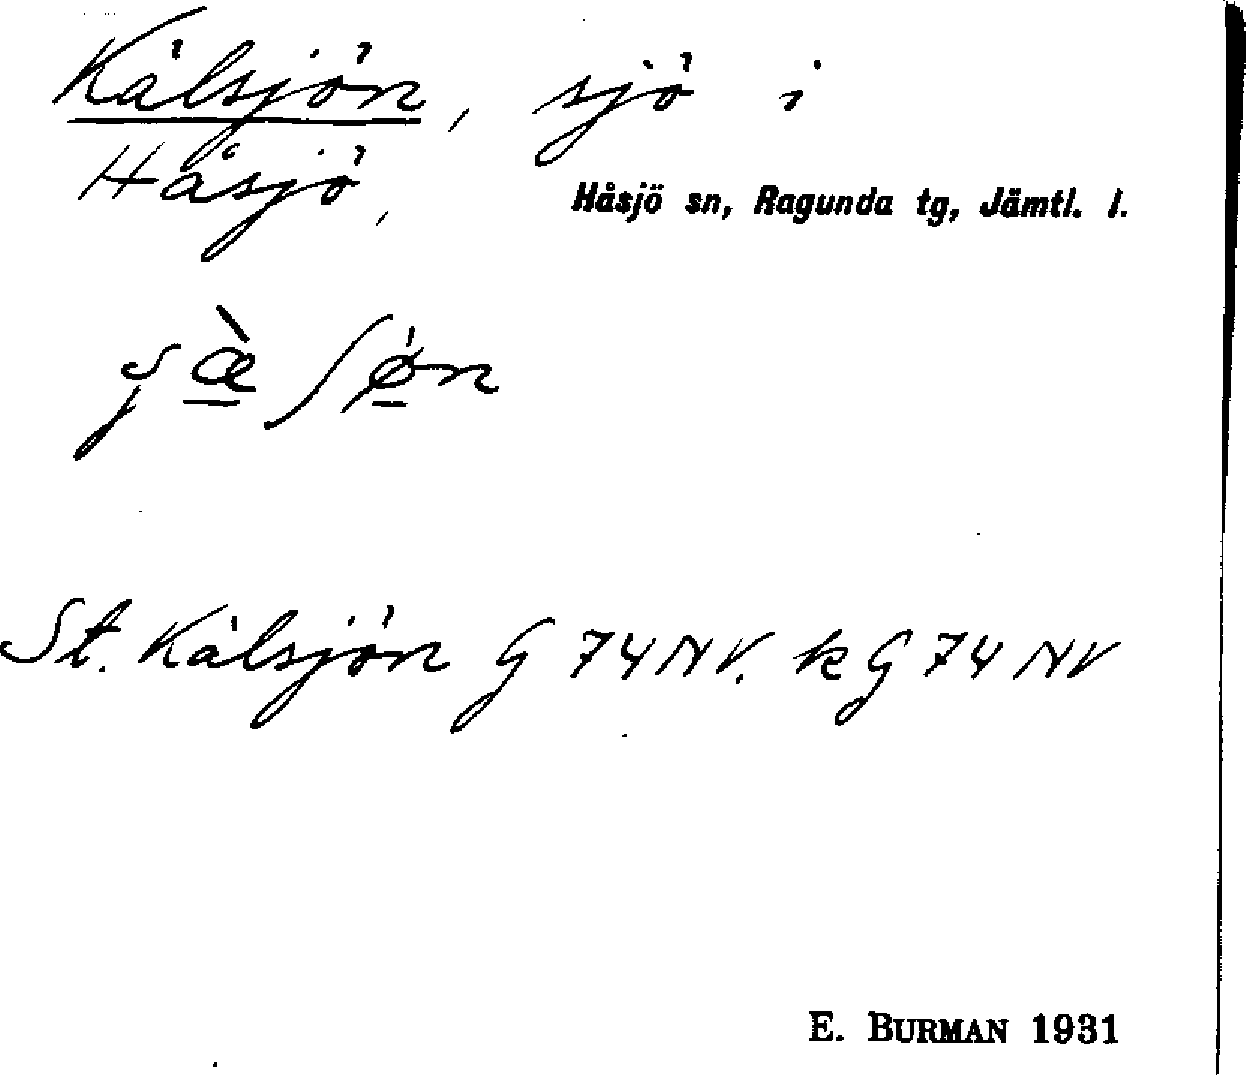 Kälsjön, sjö i
Håsjö, Håsjö sn, Ragunda tg, Jämtl. l.
St. Kälsjön G 74 NV. k G 74 NV
E. BURMAN 1931